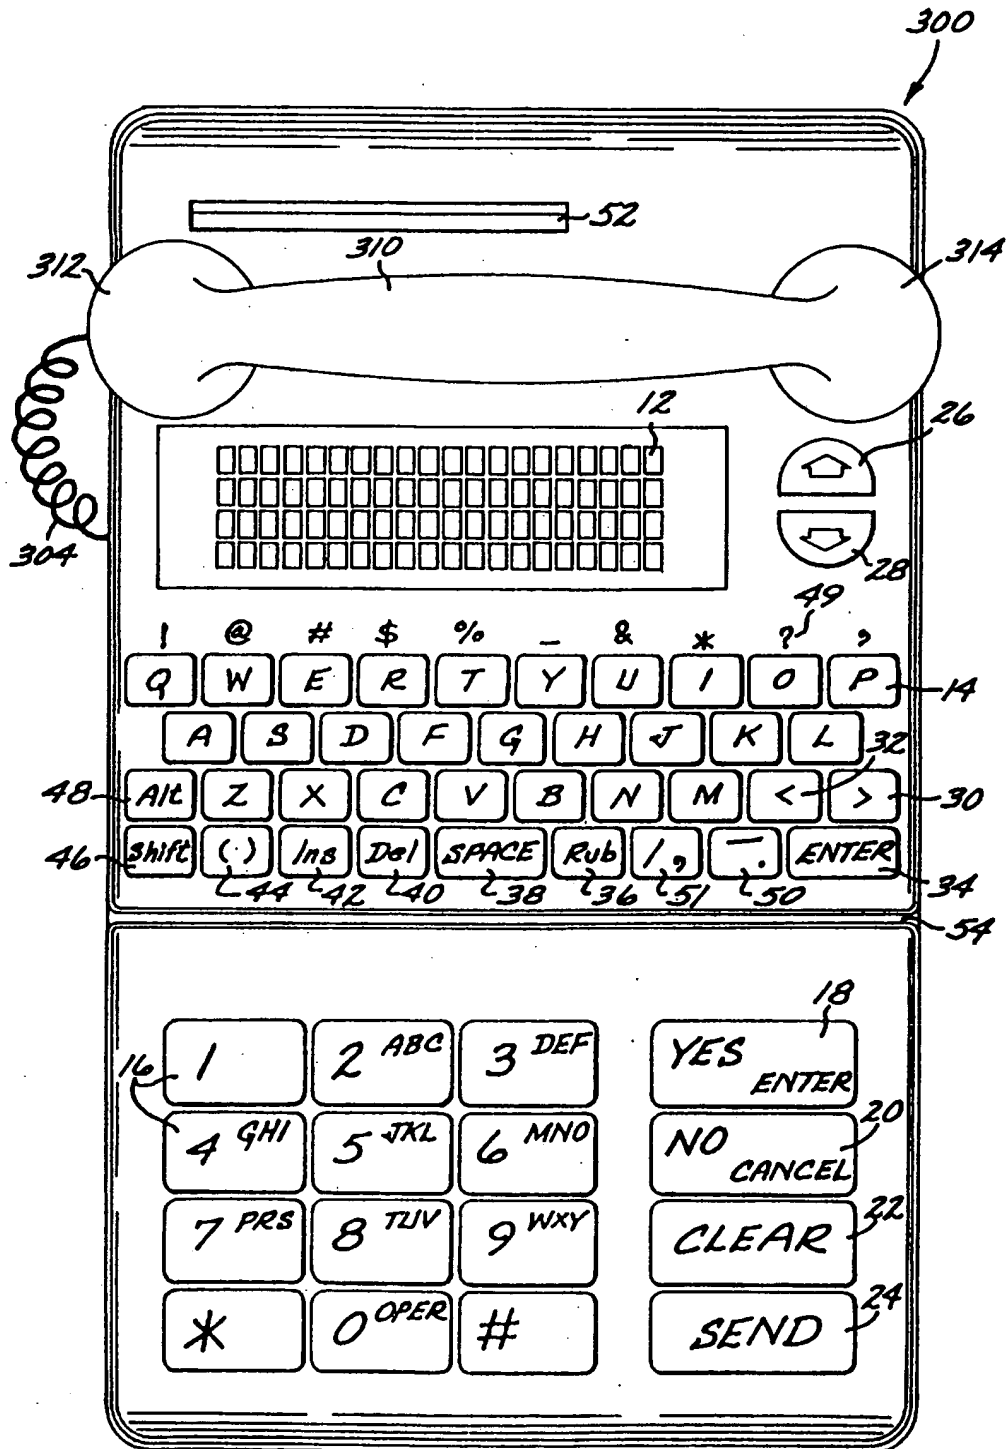 300
52
310
312
314
12
26
304
28
49
! @ # $ % _ & * ? ,
Q W E R T Y U I O P
14
A S D F G H J K L
32
48
Alt Z X C V B N M < >
30
46
Shift (·) Ins Del SPACE Rub /, —. ENTER
44 42 40 38 36 51 50
34
54
18
16
1 2 ABC 3 DEF YES ENTER
20
4 GHI 5 JKL 6 MNO NO CANCEL
22
7 PRS 8 TUV 9 WXY CLEAR
24
* 0 OPER # SEND